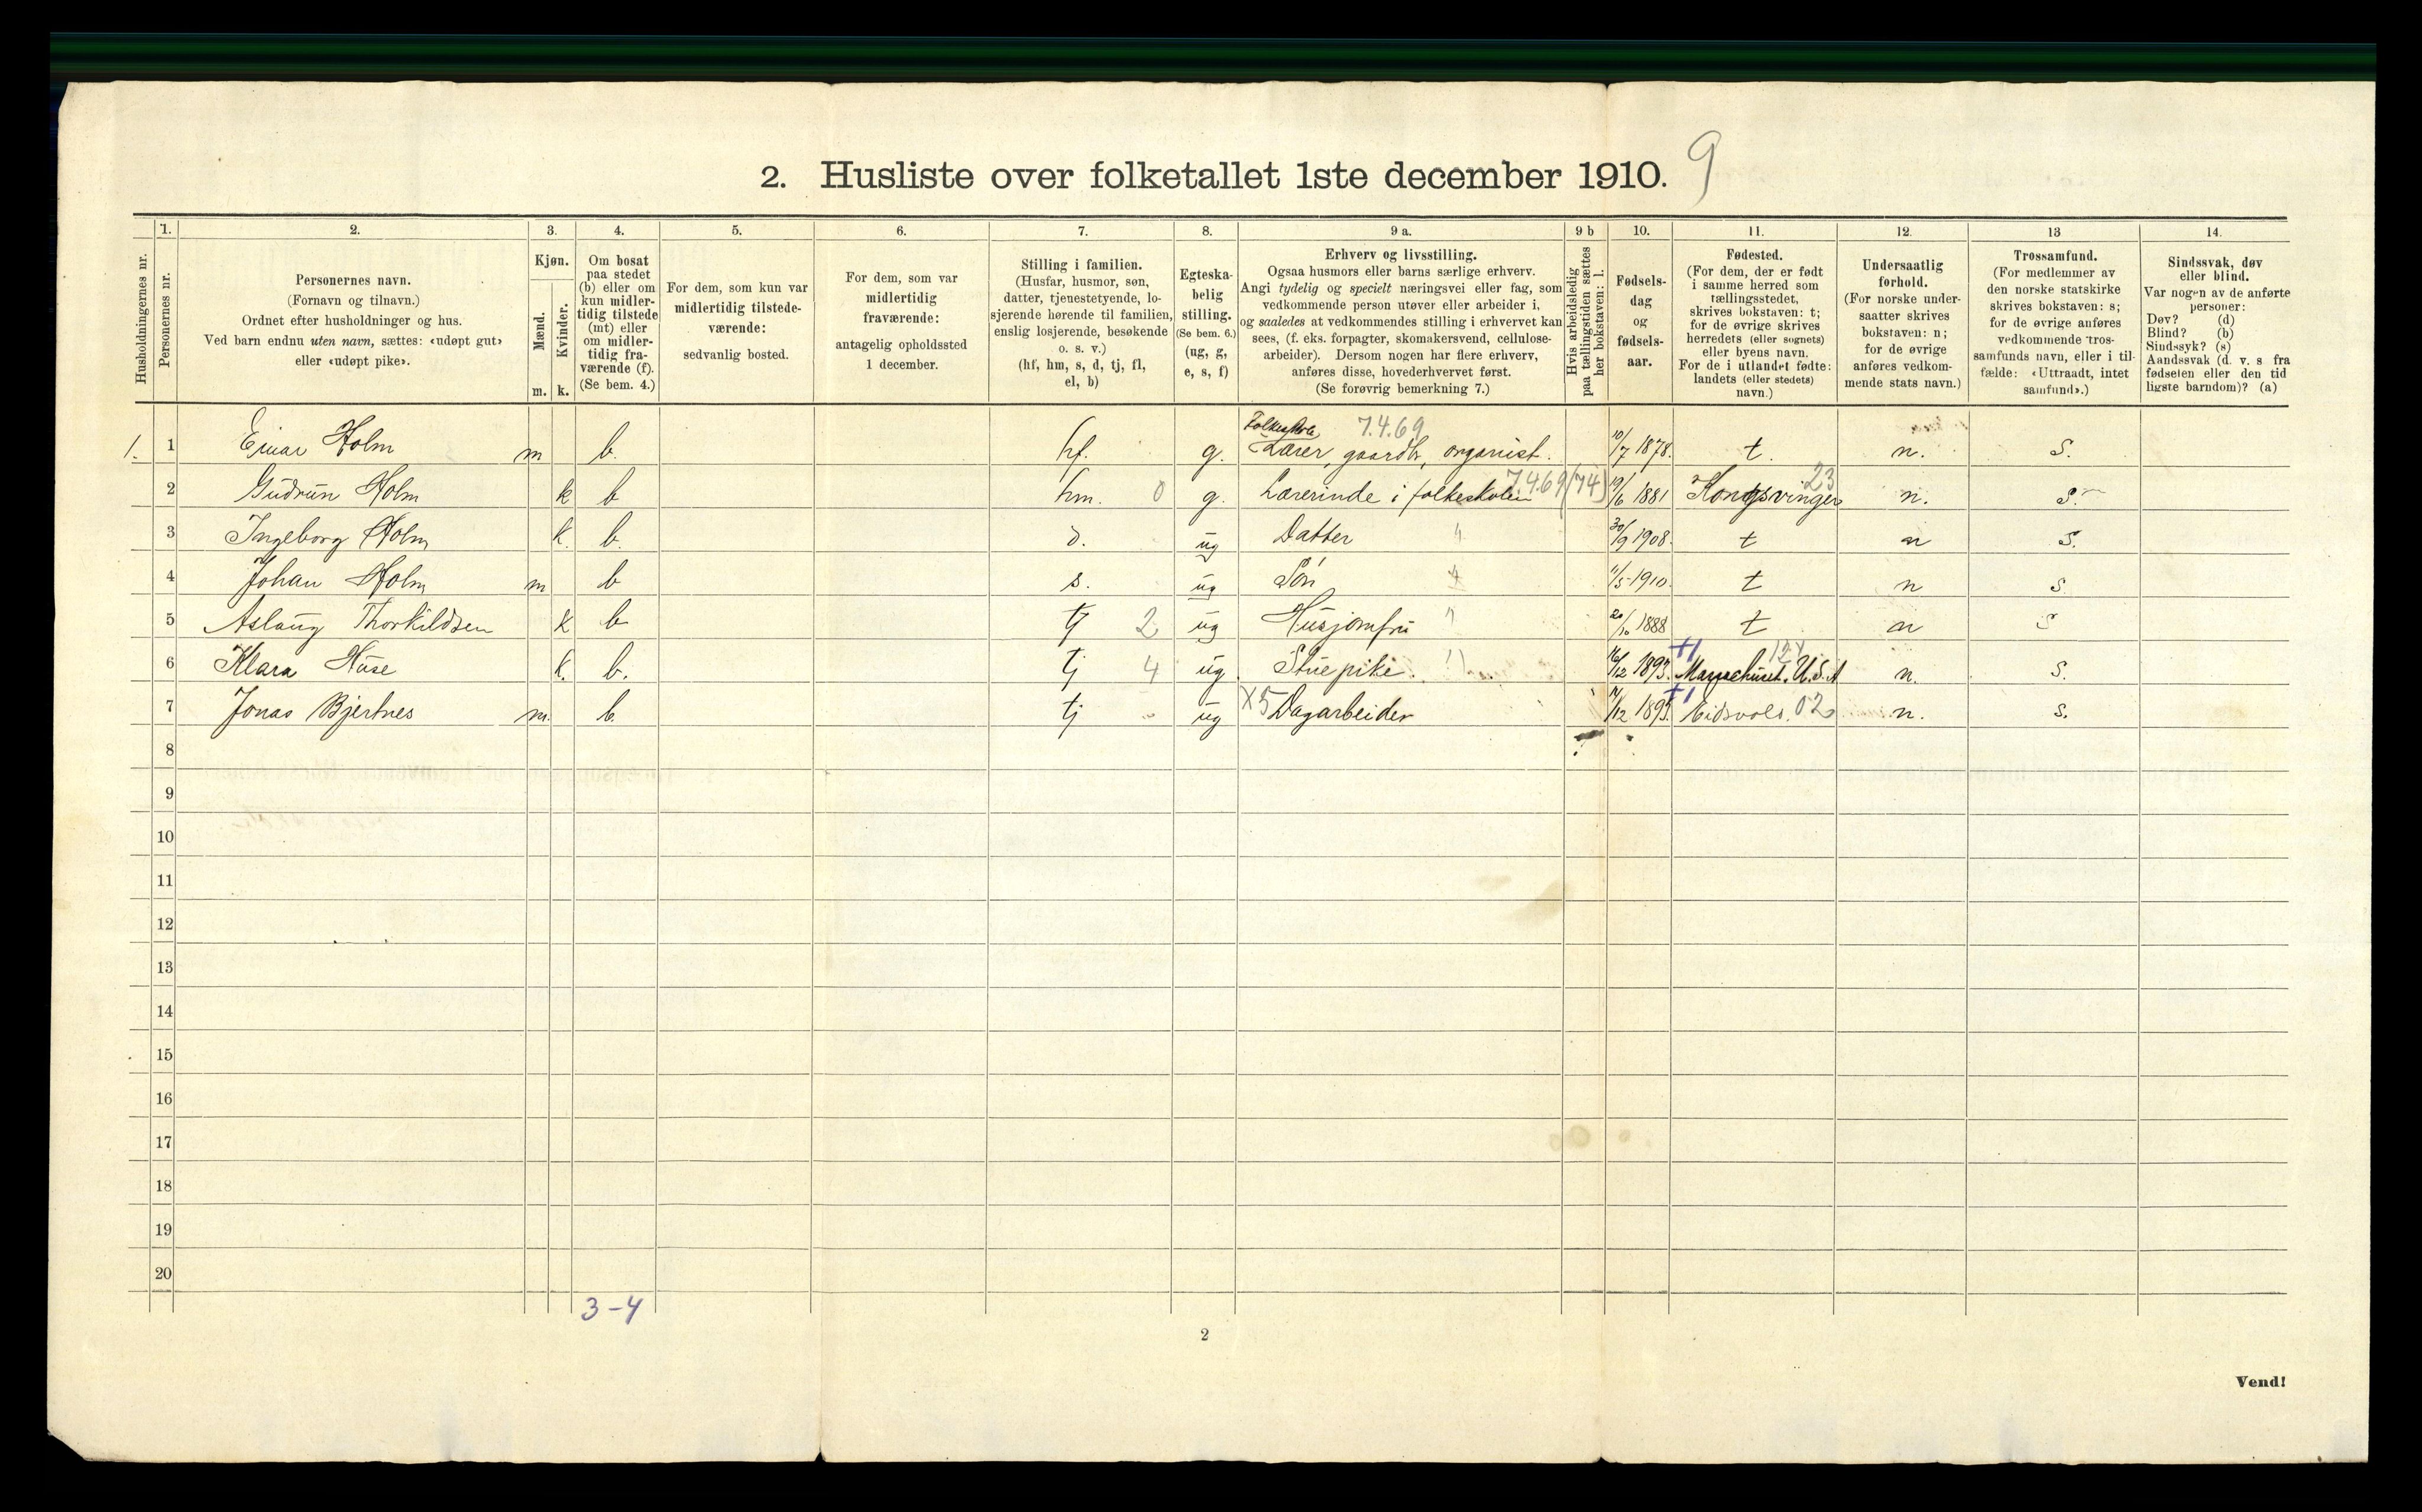 2. Husliste over folketallet 1ste december 1910. 9
Husholdningernes nr.
1.
Personernes nr.
2.
Personernes navn.
(Fornavn og tilnavn.)
Ordnet efter husholdninger og hus.
Ved barn endnu uten navn, sættes: «udøpt gut»
eller «udøpt pike».
3.
Kjøn.
Mænd.
m.
Kvinder.
k.
4.
Om bosat
paa stedet
(b) eller om
kun midler-
tidig tilstede
(mt) eller
om midler-
tidig fra-
værende (f).
(Se bem. 4.)
5.
For dem, som kun var
midlertidig tilstede-
værende:
sedvanlig bosted.
6.
For dem, som var
midlertidig
fraværende:
antagelig opholdssted
1 december.
7.
Stilling i familien.
(Husfar, husmor, søn,
datter, tjenestetyende, lo-
sjerende hørende til familien,
enslig losjerende, besøkende
o. s. v.)
(hf, hm, s, d, tj, fl,
el, b)
8.
Egteska-
belig
stilling.
(Se bem. 6.)
(ug, g,
e, s, f)
9 a.
Erhverv og livsstilling.
Ogsaa husmors eller barns særlige erhverv.
Angi tydelig og specielt næringsvei eller fag, som
vedkommende person utøver eller arbeider i,
og saaledes at vedkommendes stilling i erhvervet kan
sees, (f. eks. forpagter, skomakersvend, cellulose-
arbeider). Dersom nogen har flere erhverv,
anføres disse, hovederhvervet først.
(Se forøvrig bemerkning 7.)
9 b
Hvis arbeidsledig
paa tællingstiden sættes
her bokstaven: l.
10.
Fødsels-
dag
og
fødsels-
aar.
11.
Fødested.
(For dem, der er født
i samme herred som
tællingsstedet,
skrives bokstaven: t;
for de øvrige skrives
herredets (eller sognets)
eller byens navn.
For de i utlandet fødte:
landets (eller stedets)
navn.)
12.
Undersaatlig
forhold.
(For norske under-
saatter skrives
bokstaven: n;
for de øvrige
anføres vedkom-
mende stats navn.)
13
Trossamfund.
(For medlemmer av
den norske statskirke
skrives bokstaven: s;
for de øvrige anføres
vedkommende tros-
samfunds navn, eller i til-
fælde: «Uttraadt, intet
samfund».)
14.
Sindssvak, døv
eller blind.
Var nogen av de anførte
personer:
Døv? (d)
Blind? (b)
Sindssyk? (s)
Aandssvak (d. v. s fra
fødselen eller den tid
ligste barndom)? (a)
Folkeskole 7.4.69
1. 1 Einar Holm m b. hf. g. Lærer, gaardbr, organist. 10/7 1878. t. n. S.
2 Gudrun Holm k b hm. 0 g. Lærerinde i folkeskolen 7.4.69 (74) 19/6 1881 Kongsvinger 23 n. S.
3 Ingeborg Holm k. b. d. ug Datter " 30/9 1908. t n S.
4 Johan Holm m b s. ug Søn 11/5 1910. t n S.
5 Aslaug Thorkildsen k b tj 2 ug Husjomfru " 20/10 1888 t n S
6 Klara Huse k. b. tj 4 ug. Stuepike. 16/12 1893. U.S.A n. S.
7 Jonas Bjertnes m. b tj ug X5 Dagarbeider /12 1893. Eidsvold. 02 n. S.
8
9
10
11
12
13
14
15
16
17
18
19
20
3-4
2
Vend!